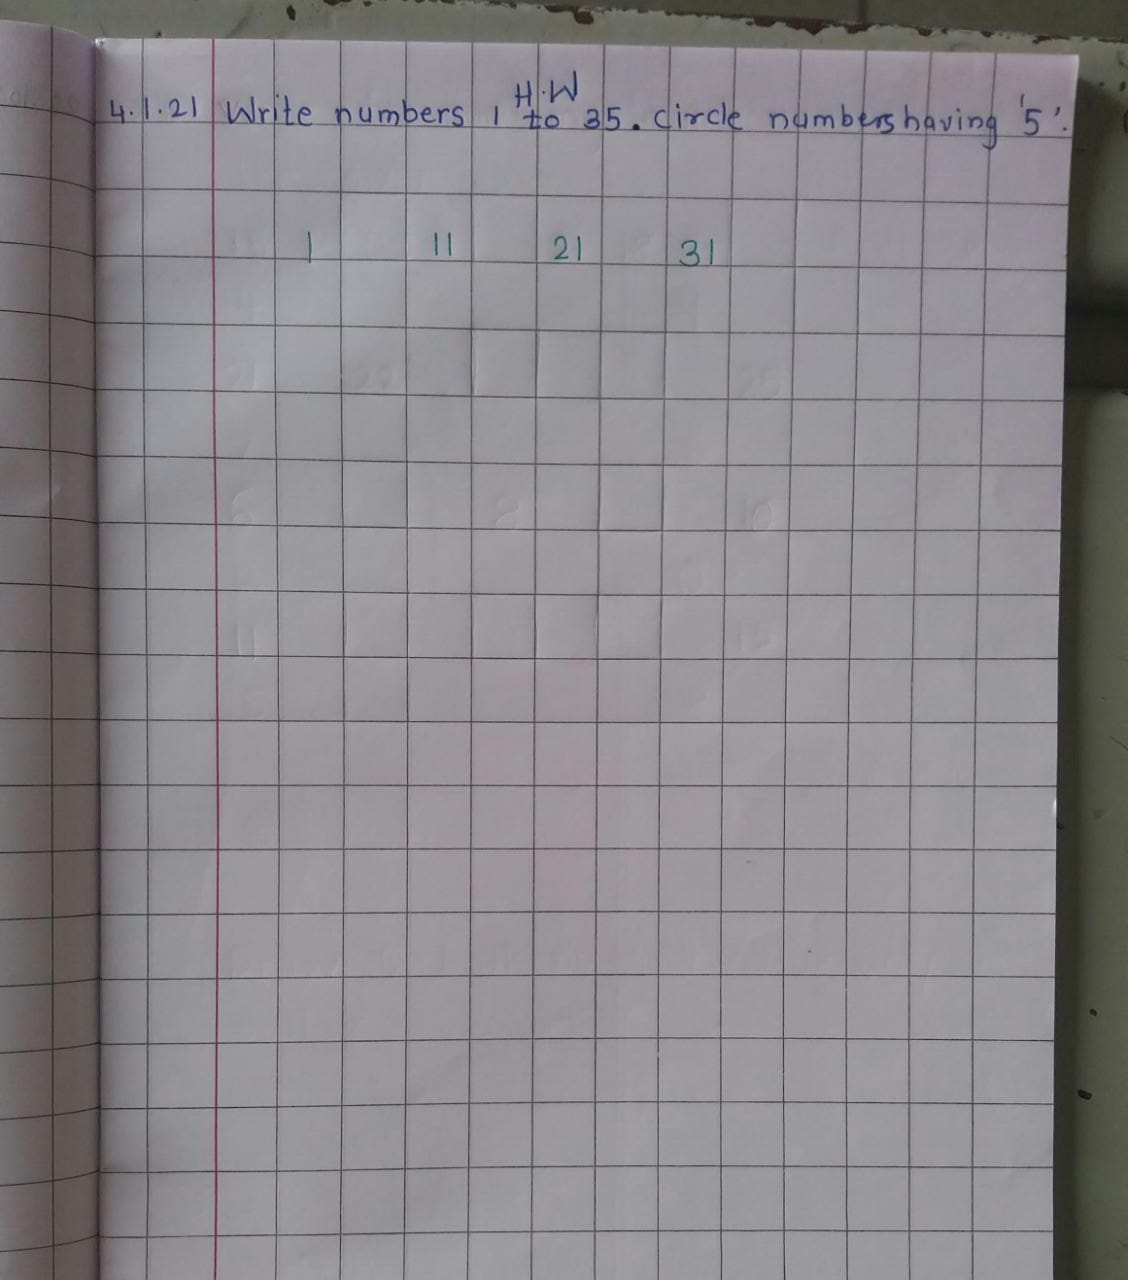 H.W
4.1.21 Write numbers 1 to 35. circle numbers having '5'.
1 11 21 31